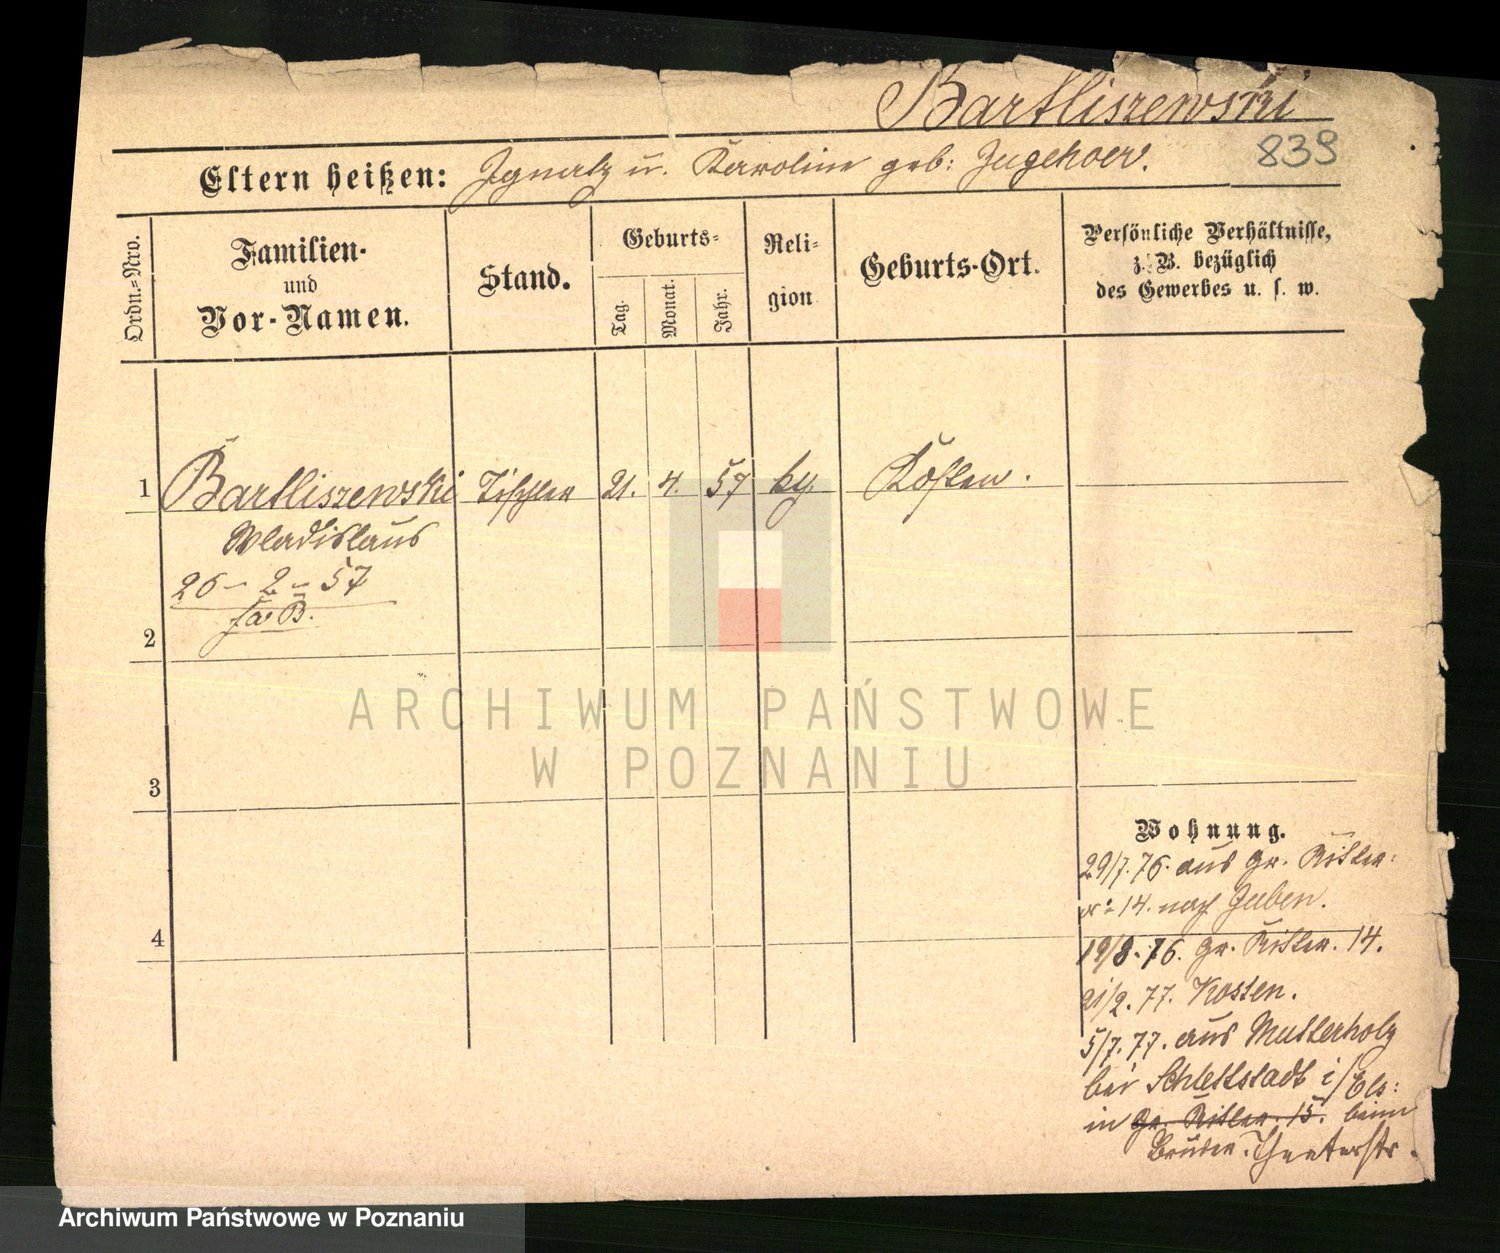 Bartliszewski
839
Eltern heißen: Ignatz u. Karoline geb: Jugehoer.
Ordn.-Nro.
Familien-
und
Vor-Namen.
Stand.
Geburts-
Tag.
Monat.
Jahr.
Reli-
gion
Geburts-Ort.
Persönliche Verhältnisse,
z. B. bezüglich
des Gewerbes u. s. w.
1 Bartliszewski Tischler 21. 4. 57 Kosten.
Wladislaus
26 - 2 - 57
2
3
4
Wohnung.
29/7. 76. aus Gr. Ritter-
14. nach Guben.
19/8. 76. Gr. Ritter. 14.
21/2. 77. Kosten.
5/7. 77. aus Mutterholz
bei Schlettstadt i/Els:
in Gr. Ritter. 15. beim
Bruder. Theaterstr.
ARCHIWUM PAŃSTWOWE
W POZNANIU
Archiwum Państwowe w Poznaniu